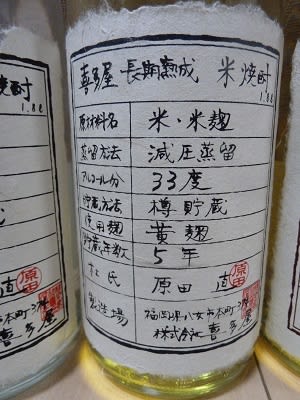 喜多屋 長期熟成 米焼酎
1.8ℓ
原材料名 米・米麹
蒸留方法 減圧蒸留
アルコール分 33度
貯蔵方法 樽貯蔵
使用麹 黄麹
貯蔵年数 5年
杜氏 原田 直 原田
製造場 福岡県八女市本町
株式会社 喜多屋
焼酎
1.8ℓ
直 原田
市本町
喜多屋